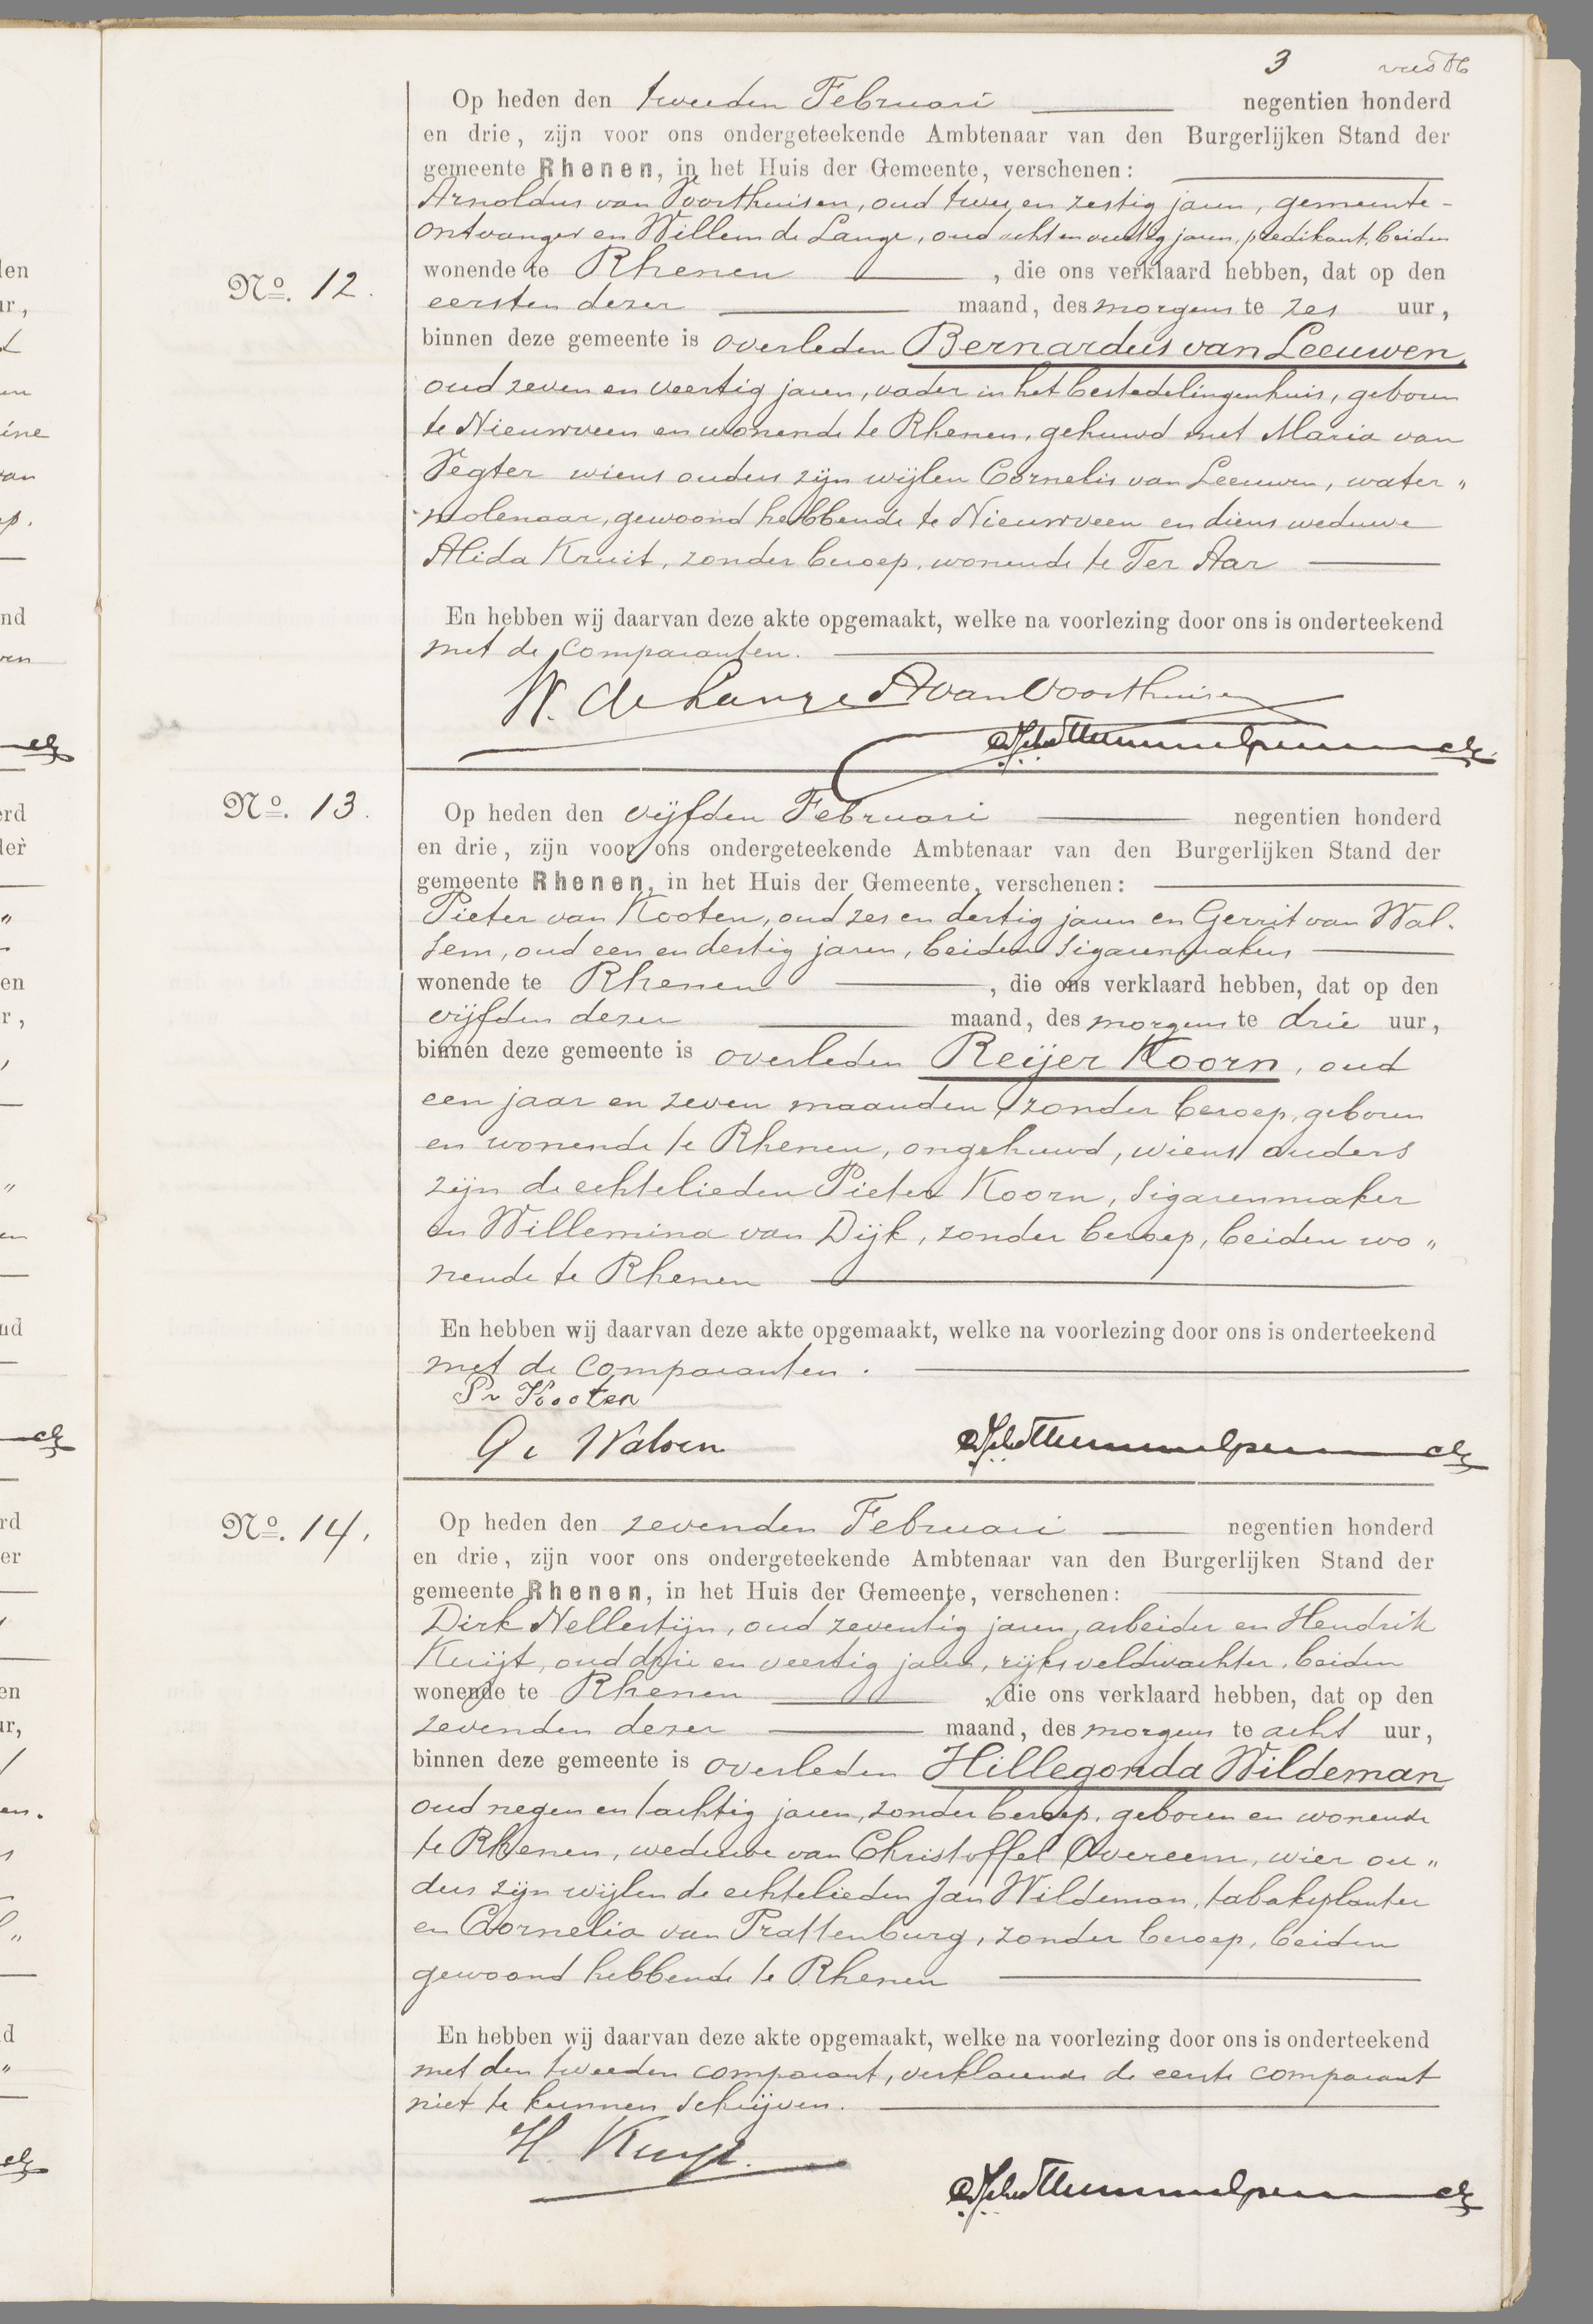 3
Op heden den tweeden Februari negentien honderd
en drie, zijn voor ons ondergeteekende Ambtenaar van den Burgerlijken Stand der
gemeente Rhenen, in het Huis der Gemeente, verschenen:
Arnoldus van Voorthuisen, oud twee en zestig jaren, gemeente-
ontvanger en Willem de Lange, oud acht en veertig jaren, predikant, beiden
No. 12.
wonende te Rhenen, die ons verklaard hebben, dat op den
eersten dezer maand, des morgens te zes uur,
binnen deze gemeente is overleden Bernardus van Leeuwen,
oud zeven en veertig jaren, vader in het bestedelingenhuis, geboren
te Nieuwveen en wonende te Rhenen, gehuwd met Maria van
Vegter wiens ouders zijn wijlen Cornelis van Leeuwen, water„
molenaar, gewoond hebbende te Nieuwveen en diens weduwe
Alida Kruit, zonder beroep, wonende te Ter Aar
En hebben wij daarvan deze akte opgemaakt, welke na voorlezing door ons is onderteekend
met de comparanten.
W. de Lange AvanVoorthuisen
No. 13.
Op heden den vijfden Februari negentien honderd
en drie, zijn voor ons ondergeteekende Ambtenaar van den Burgerlijken Stand der
gemeente Rhenen, in het Huis der Gemeente, verschenen:
Pieter van Kooten, oud zes en dertig jaren en Gerrit van Wal-
sem, oud een en dertig jaren, beiden sigarenmakers
wonende te Rhenen, die ons verklaard hebben, dat op den
vijfden dezer maand, des morgens te drie uur,
binnen deze gemeente is overleden Reijer Koorn, oud
een jaar en zeven maanden, zonder beroep, geboren
en wonende te Rhenen, ongehuwd, wiens ouders
zijn de echtelieden Pieter Koorn, sigarenmaker
en Willemina van Dijk, zonder beroep, beiden wo„
nende te Rhenen
En hebben wij daarvan deze akte opgemaakt, welke na voorlezing door ons is onderteekend
met de comparanten.
Pv Kooten
Gv Walsem
No. 14.
Op heden den zevenden Februari negentien honderd
en drie, zijn voor ons ondergeteekende Ambtenaar van den Burgerlijken Stand der
gemeente Rhenen, in het Huis der Gemeente, verschenen:
Dirk Nellestijn, oud zeventig jaren, arbeider en Hendrik
Kuijt, oud drie en veertig jaren, rijksveldwachter, beiden
wonende te Rhenen, die ons verklaard hebben, dat op den
zevenden dezer maand, des morgens te acht uur,
binnen deze gemeente is overleden Hillegonda Wildeman
oud negen en tachtig jaren, zonder beroep, geboren en wonende
te Rhenen, weduwe van Christoffel Overeem, wier ou„
ders zijn wijlen de echtelieden Jan Wildeman, tabaksplanter
en Cornelia van Prattenburg, zonder beroep, beiden
gewoond hebbende te Rhenen
En hebben wij daarvan deze akte opgemaakt, welke na voorlezing door ons is onderteekend
met den tweeden comparant, verklarende de eerste comparant
niet te kunnen schrijven.
H. Kuyt.